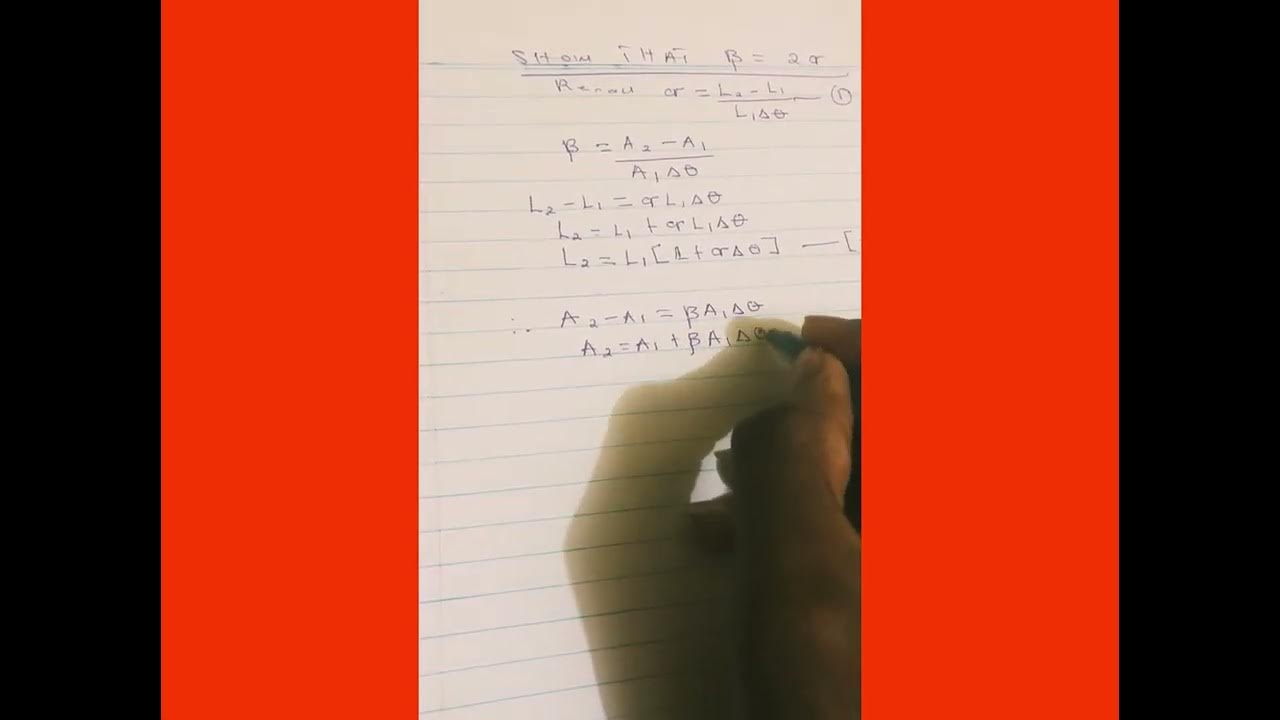 SHOW THAT β = 2α
Recall α = L₂ - L₁ / L₁Δθ — ①
β = A₂ - A₁ / A₁Δθ
L₂ - L₁ = αL₁Δθ
L₂ = L₁ + αL₁Δθ
L₂ = L₁[1 + αΔθ] — [
∴ A₂ - A₁ = βA₁Δθ
A₂ = A₁ + βA₁Δθ